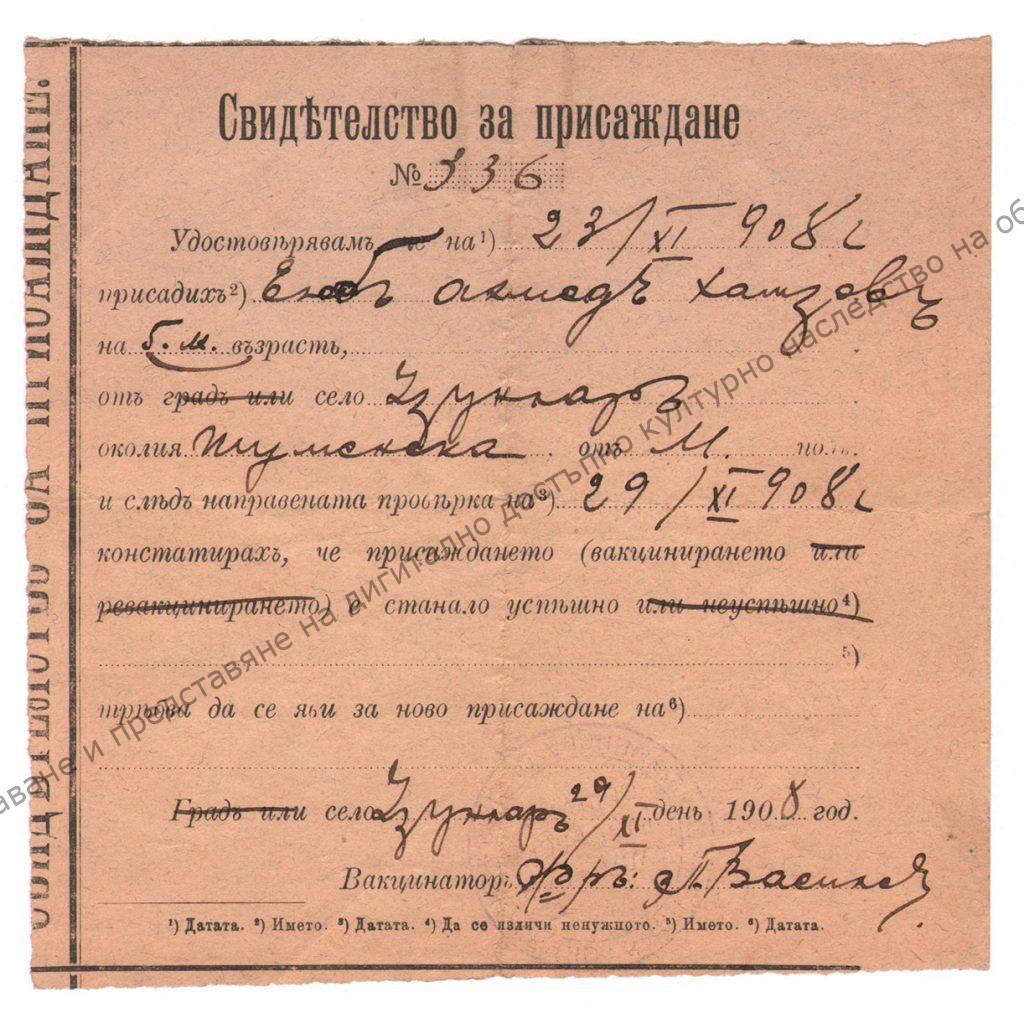 Свидѣтелство за присаждане
№ 336
Удостовѣрявамъ че на ¹) 23/XI 908 г
присадихъ ²) Еюбъ Ахмедъ Хамзовъ
на 5. м. възрасть,
отъ градъ или село Узункаръ
околия Шуменска отъ М. по...
и слѣдъ направената провѣрка на ³) 29/XI 908 г
констатирахъ, че присаждането (вакцинирането или
ревакцинирането) е станало успѣшно или неуспѣшно ⁴)
⁵)
трѣбва да се яви за ново присаждане на ⁶)
Градъ или село Узункаръ 29/XI день 1908 год.
Вакцинаторъ Ф-ръ: П. Василев
¹) Датата. ²) Името. ³) Датата. ⁴) Да се изличи ненужното. ⁵) Името. ⁶) Датата.
СВИДѢТЕЛСТВО ЗА ПРИСАЖДАНЕ.
аване и представяне на дигитално достъпно културно наследство на об